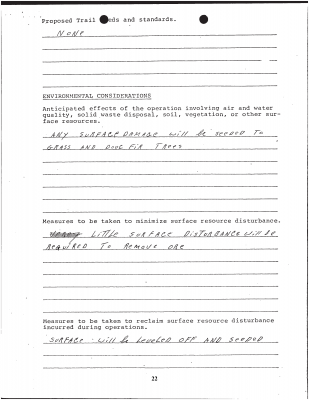 Proposed Trail needs and standards.
NONE
ENVIRONMENTAL CONSIDERATIONS
Anticipated effects of the operation involving air and water
quality, solid waste disposal, soil, vegetation, or other sur-
face resources.
ANY SURFACE DAMAGE will be seeded To
GRASS AND DOUG FIR Trees
Measures to be taken to minimize surface resource disturbance.
Little SURFACE DISTURBANCE will Be
REQUIRED To Remove ORE
Measures to be taken to reclaim surface resource disturbance
incurred during operations.
SURFACE will be leveled OFF AND SeeDeD
22